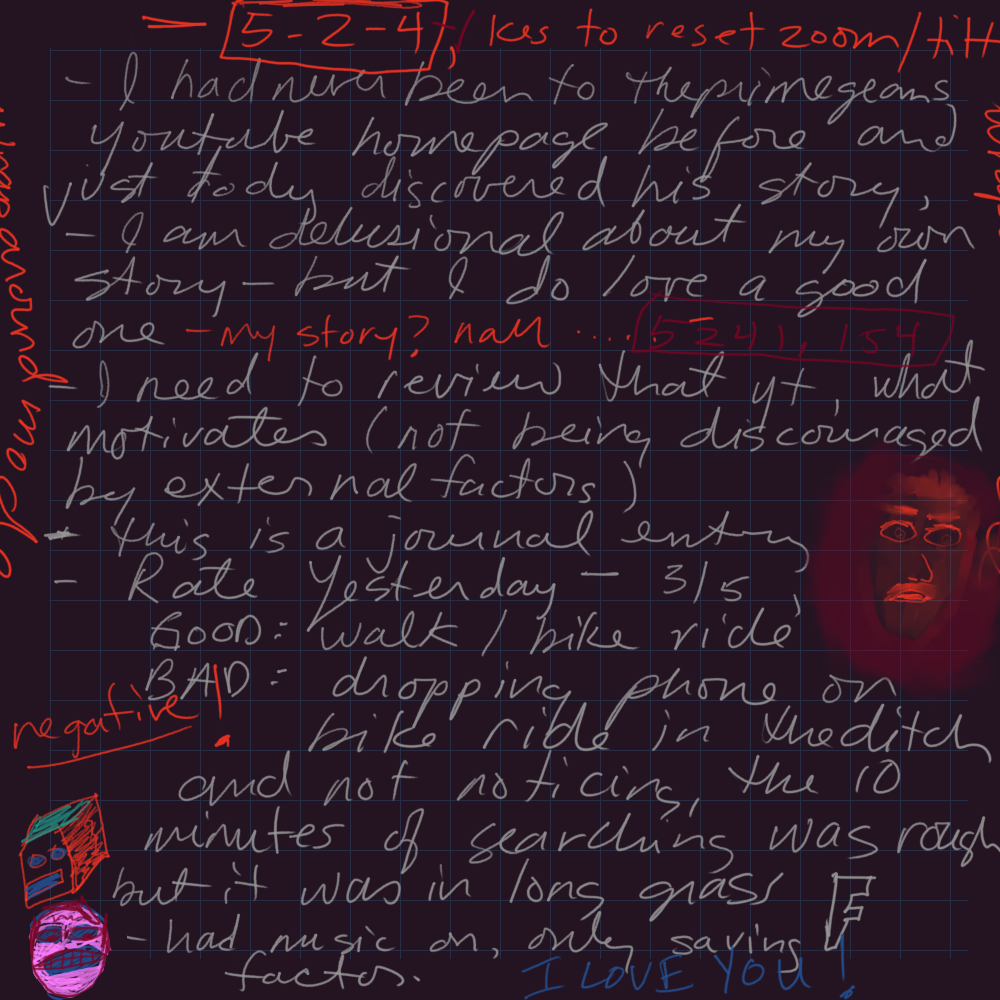 — 5-2-4, kes to reset zoom/tilt
- I had never been to theprimegeans
youtube homepage before and
just tody discovered his story,
- I am delusional about my own
story - but I do love a good
one - my story? nall ..... 5241, 154
- I need to review that yt, what
motivates (not being discouraged
by external factors)
- this is a journal entry
- Rate Yesterday - 3/5,
GOOD: walk / bike ride
BAD: dropping phone on
negative!
bike ride in the ditch
and not noticing, the 10
minutes of searching was rough
but it was in long grass F
- had music on, only saving
factor. I LOVE YOU!